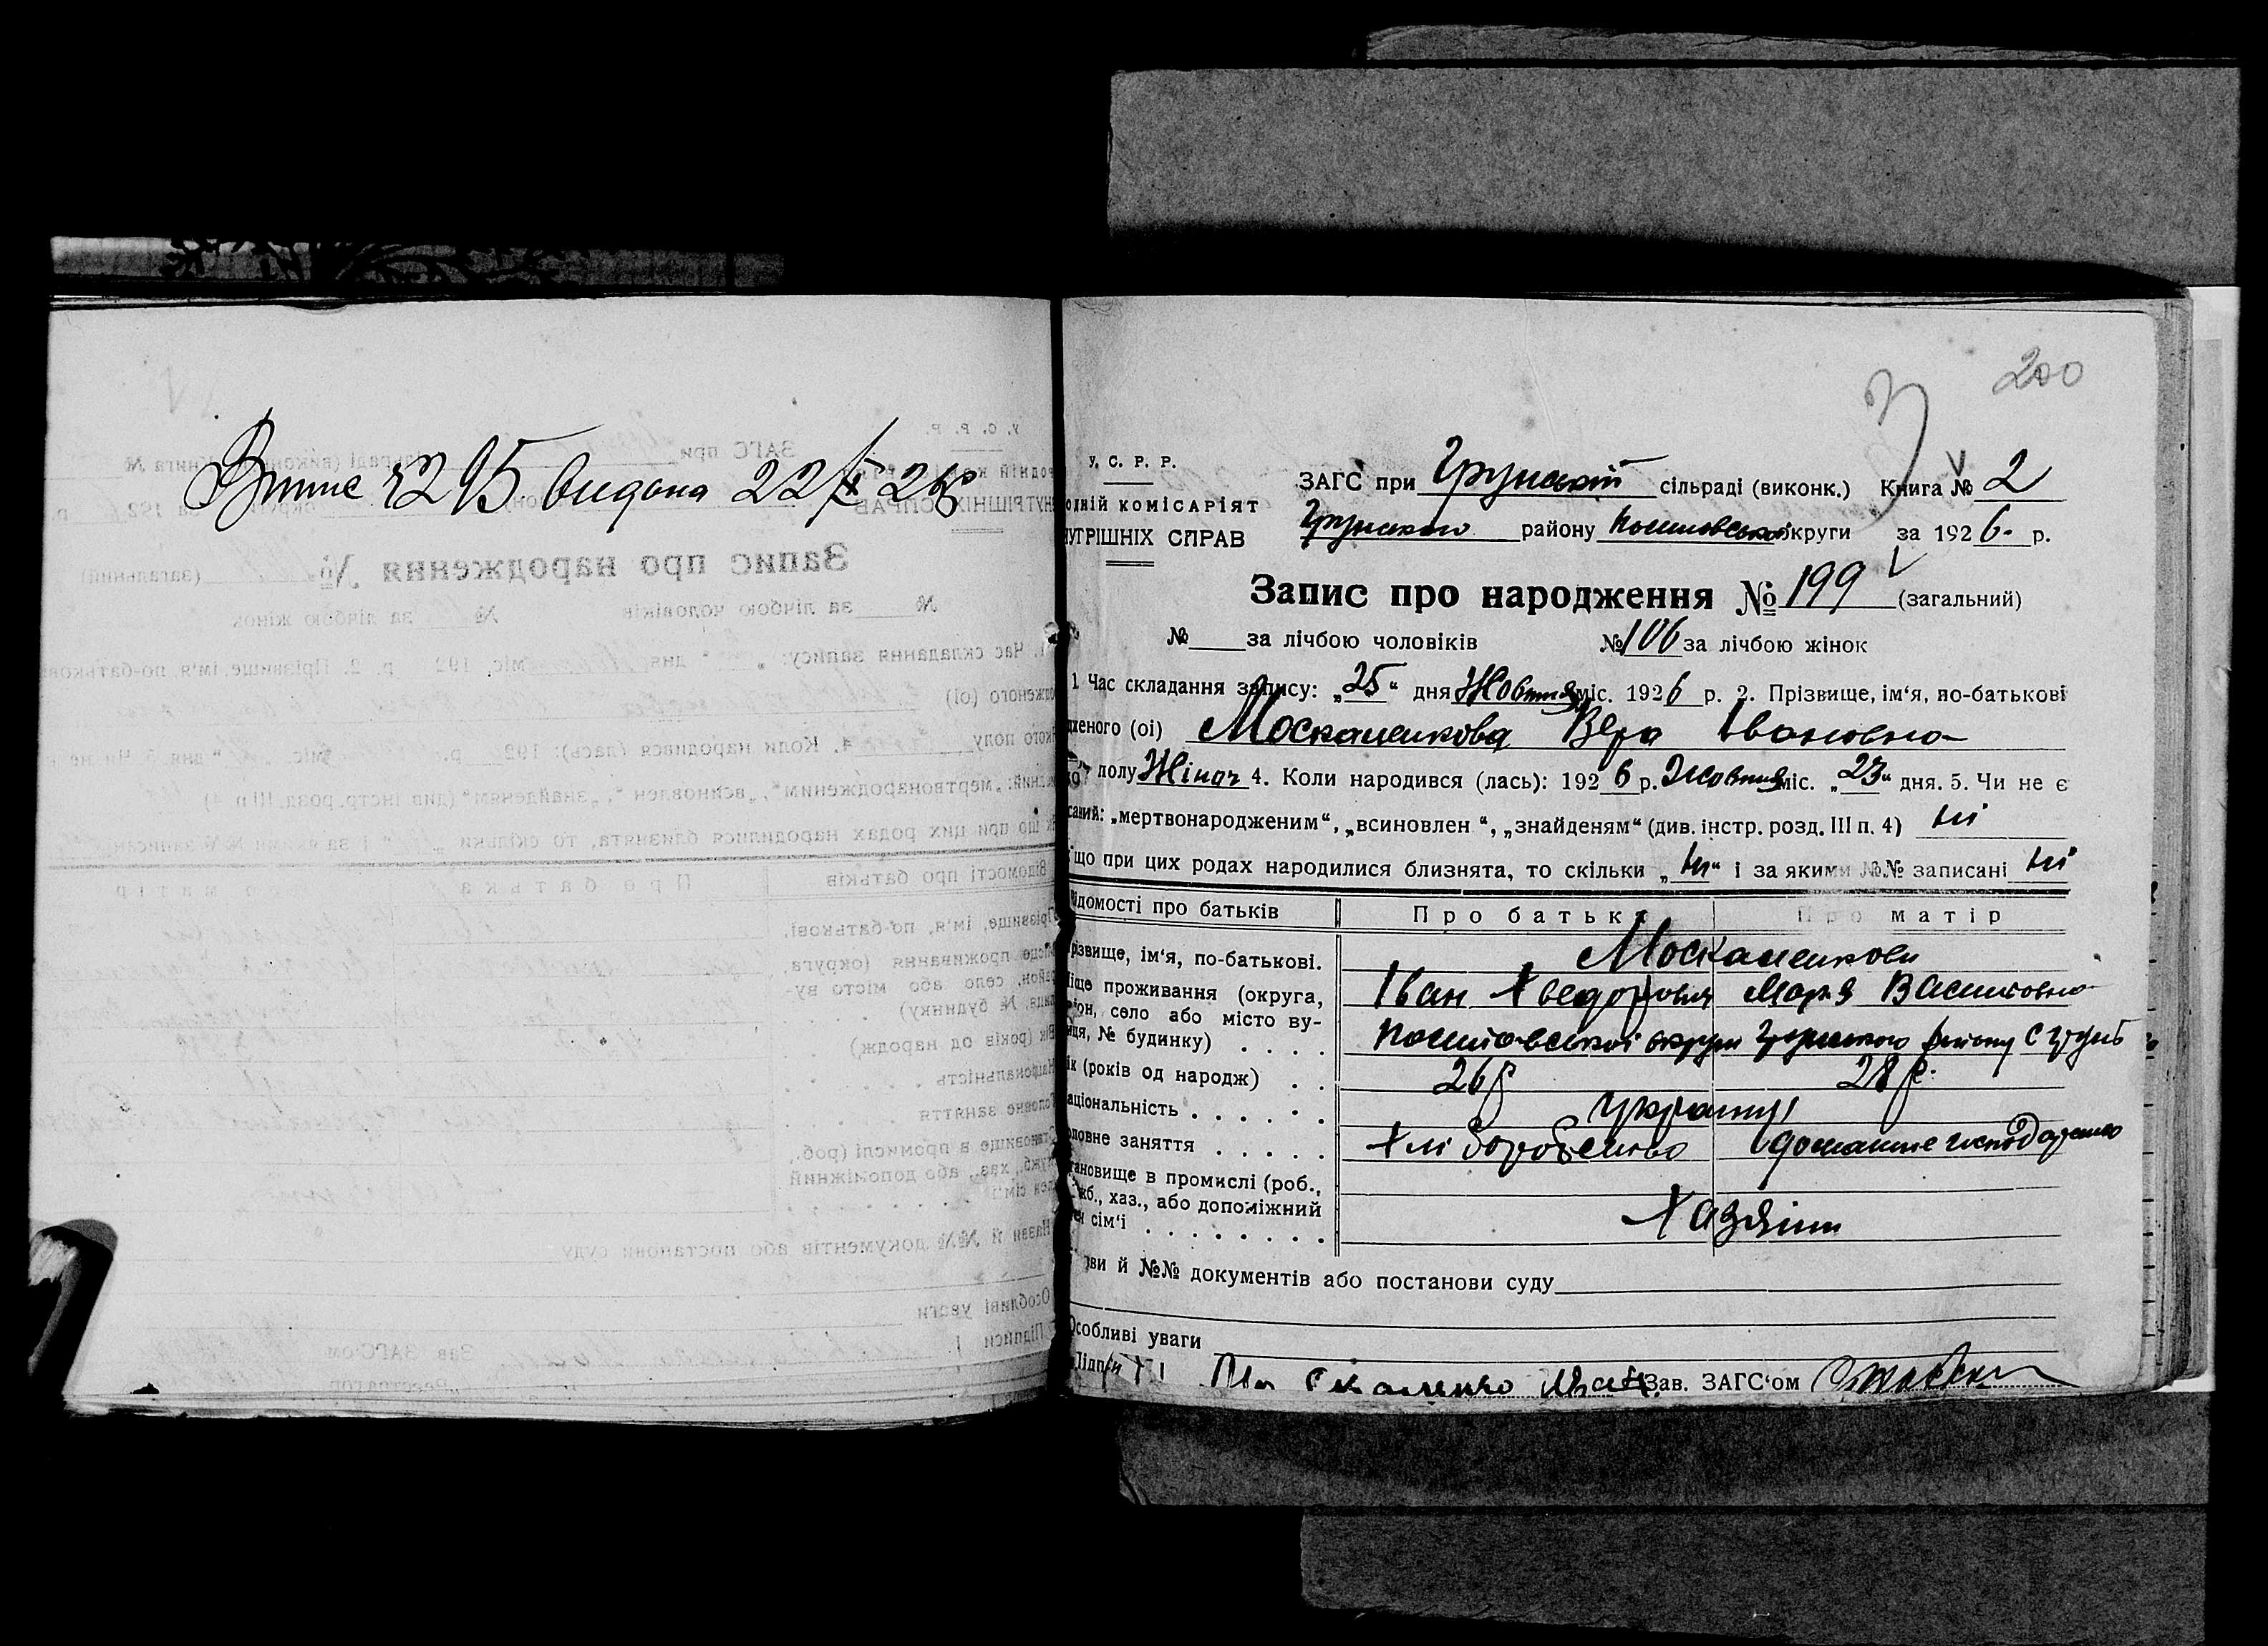 Випис № 295 видана 22/X 26р
200
У. С. Р. Р.
ОДНІЙ КОМІСАРІЯТ
УТРІШНІХ СПРАВ
ЗАГС при Грунській сільраді (виконк.) Книга № 2
Грунського району Полтавської округи за 1926. р.
Запис про народження № 199 (загальний)
№ за лічбою чоловіків № 106 за лічбою жінок
1. Час складання запису: „25“ дня Жовтня міс. 1926 р. 2. Прізвище, ім‘я, по-батькові
дженого (ої) Москаленкова Вера Івановна
полу Жіноч 4. Коли народився (лась): 1926 р. Жовтня міс. „23“ дня. 5. Чи не є
саний: „мертвонародженим“, „всиновлен “, „знайденям“ (див. інстр. розд. III п. 4) ні
що при цих родах народилися близнята, то скільки „ні“ і за якими №№ записані ні
ідомості про батьків Про батька Про матір
різвище, ім‘я, по-батькові. Москаленкови
іще проживання (округа, Іван Хведорович Марія Васильовна
он, село або місто ву-
иця, № будинку) . . . . Полтавської округи Грунського району с Грунь
ік (років од народж) . . 26 р 28 р.
аціональність . . . . . Українці
ловне заняття . . . . . Хліборобство домашнє господарство
тановище в промислі (роб.,
жб., хаз., або допоміжний
ен сім‘ї . . . . . . . . Хазяїни
зви й №№ документів або постанови суду
Особливі уваги
Підписи Москаленко Иван. Зав. ЗАГС‘ом